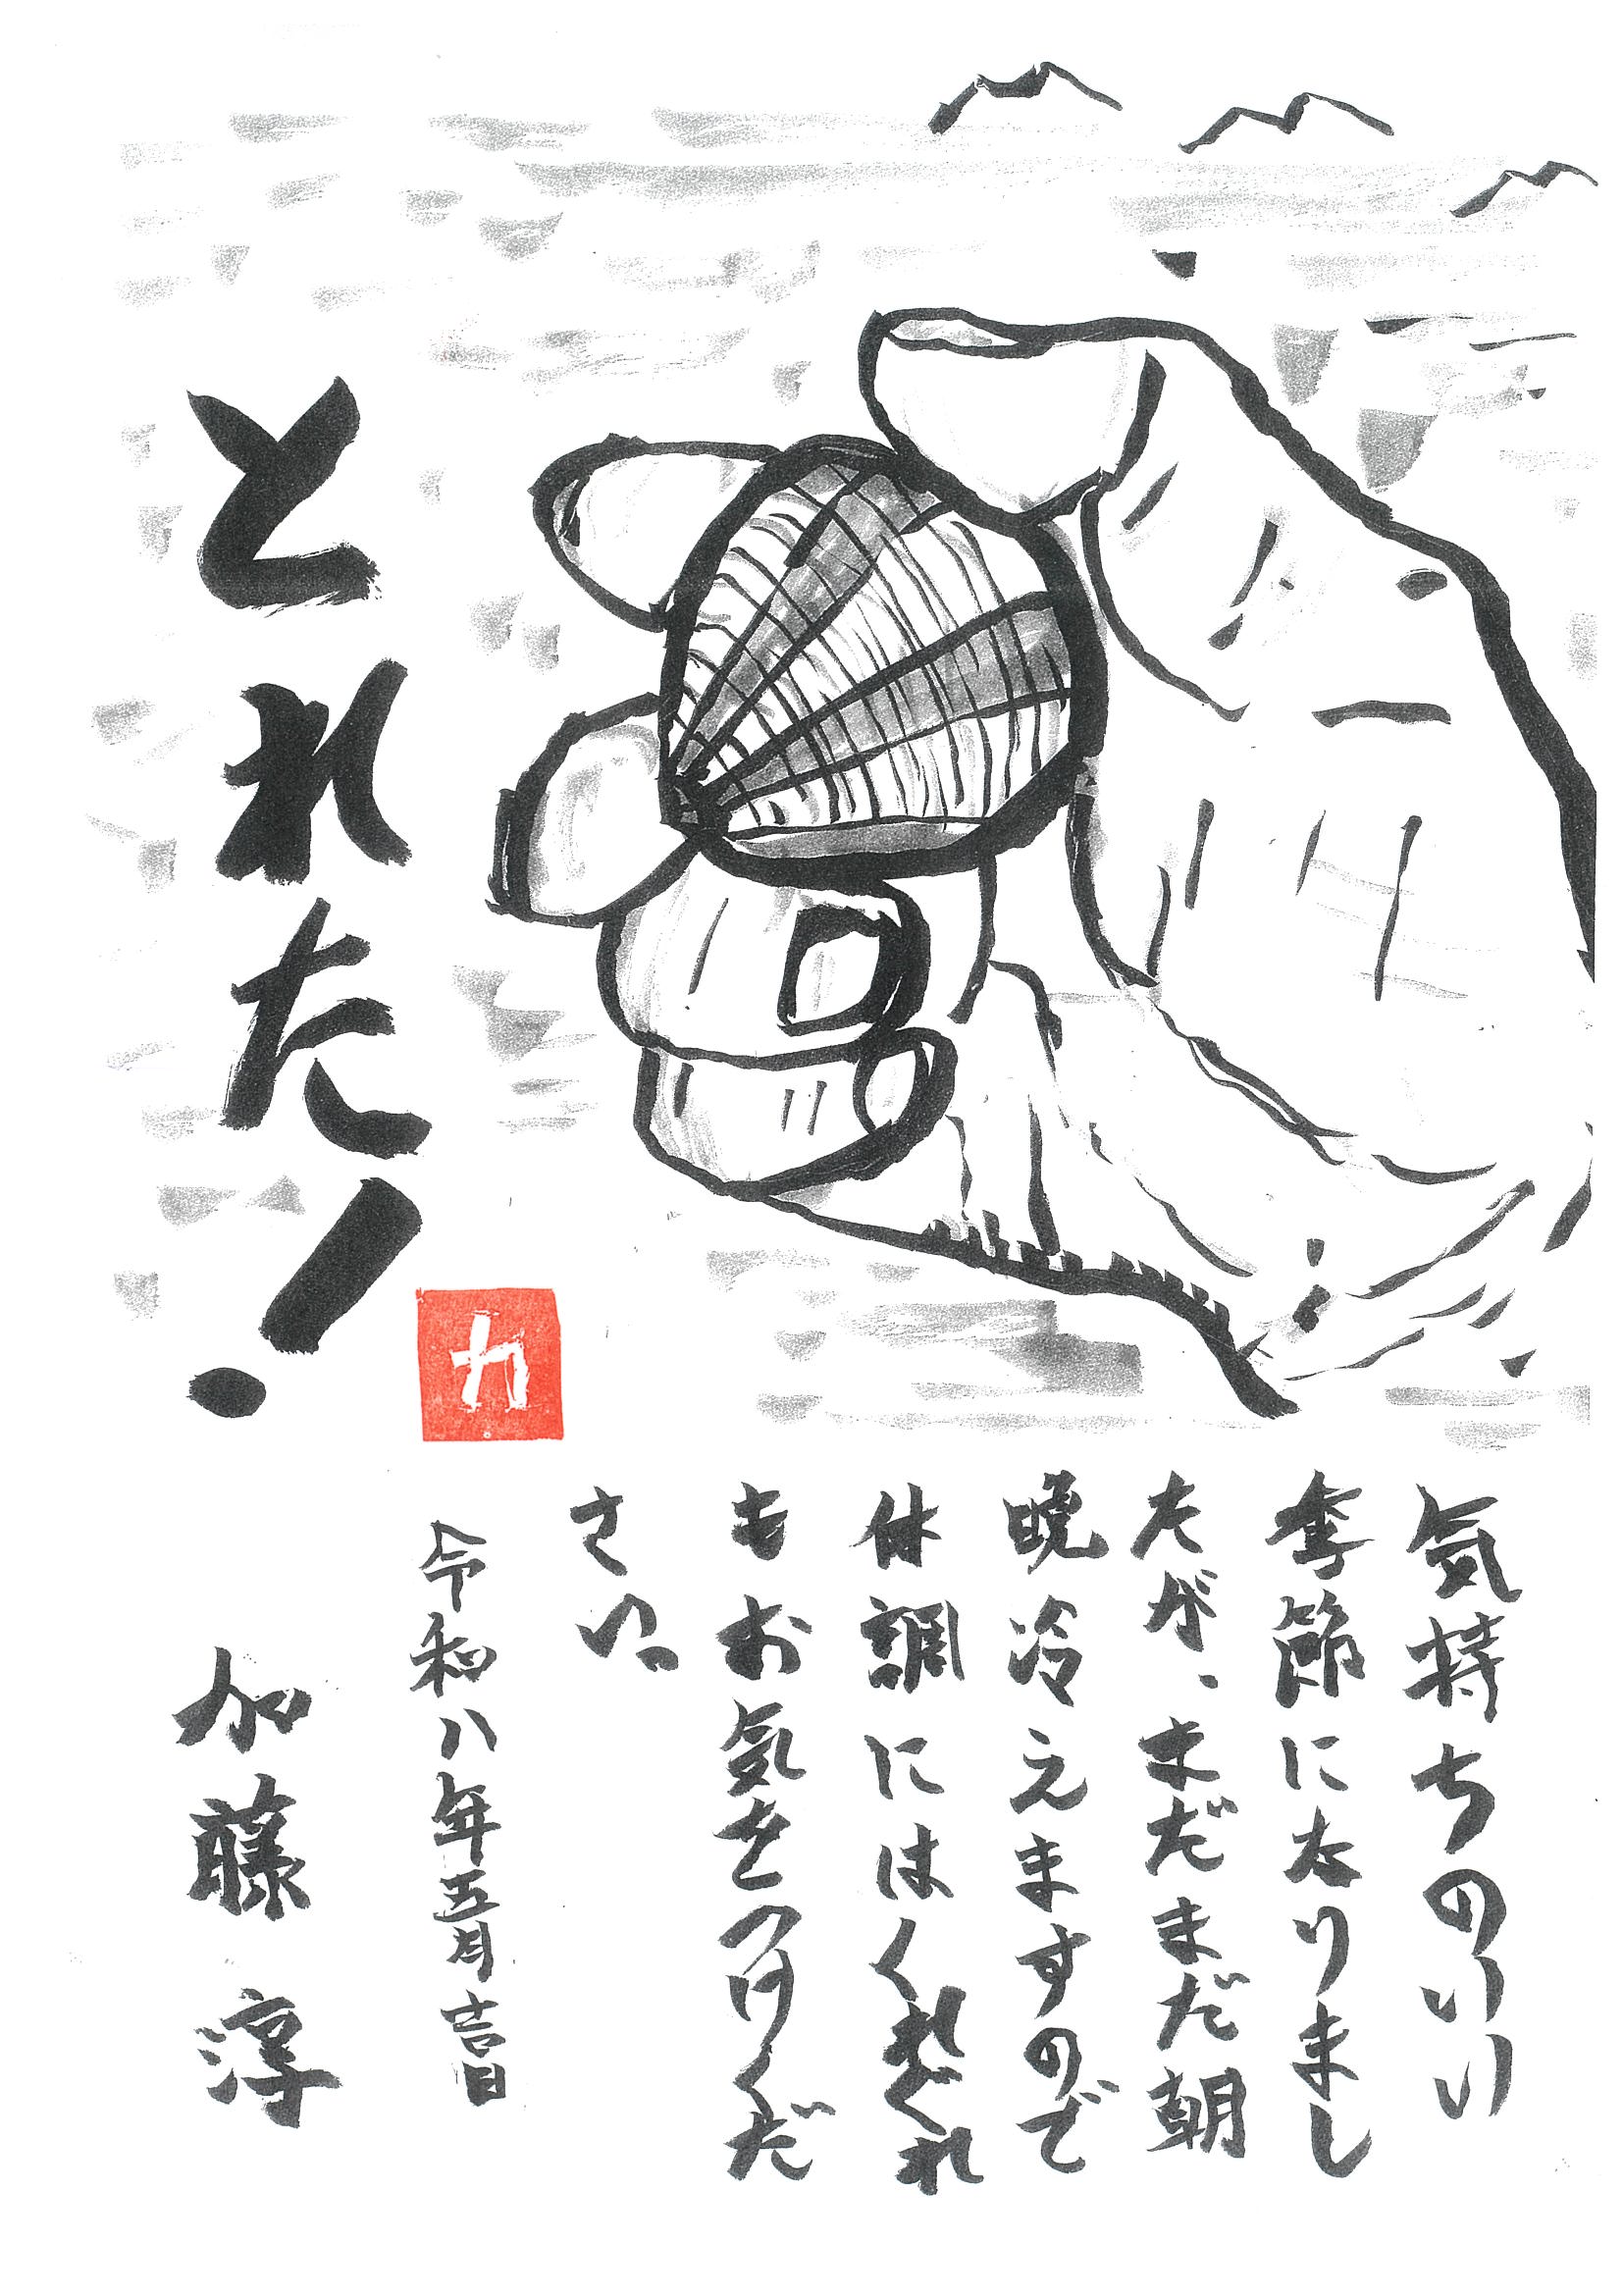 とれた!
カ
気持ちのいい
季節になりまし
たが、まだまだ朝
晩冷えますので
体調にはくれぐれ
もお気をつけくだ
さい。
令和八年五月吉日
加藤淳